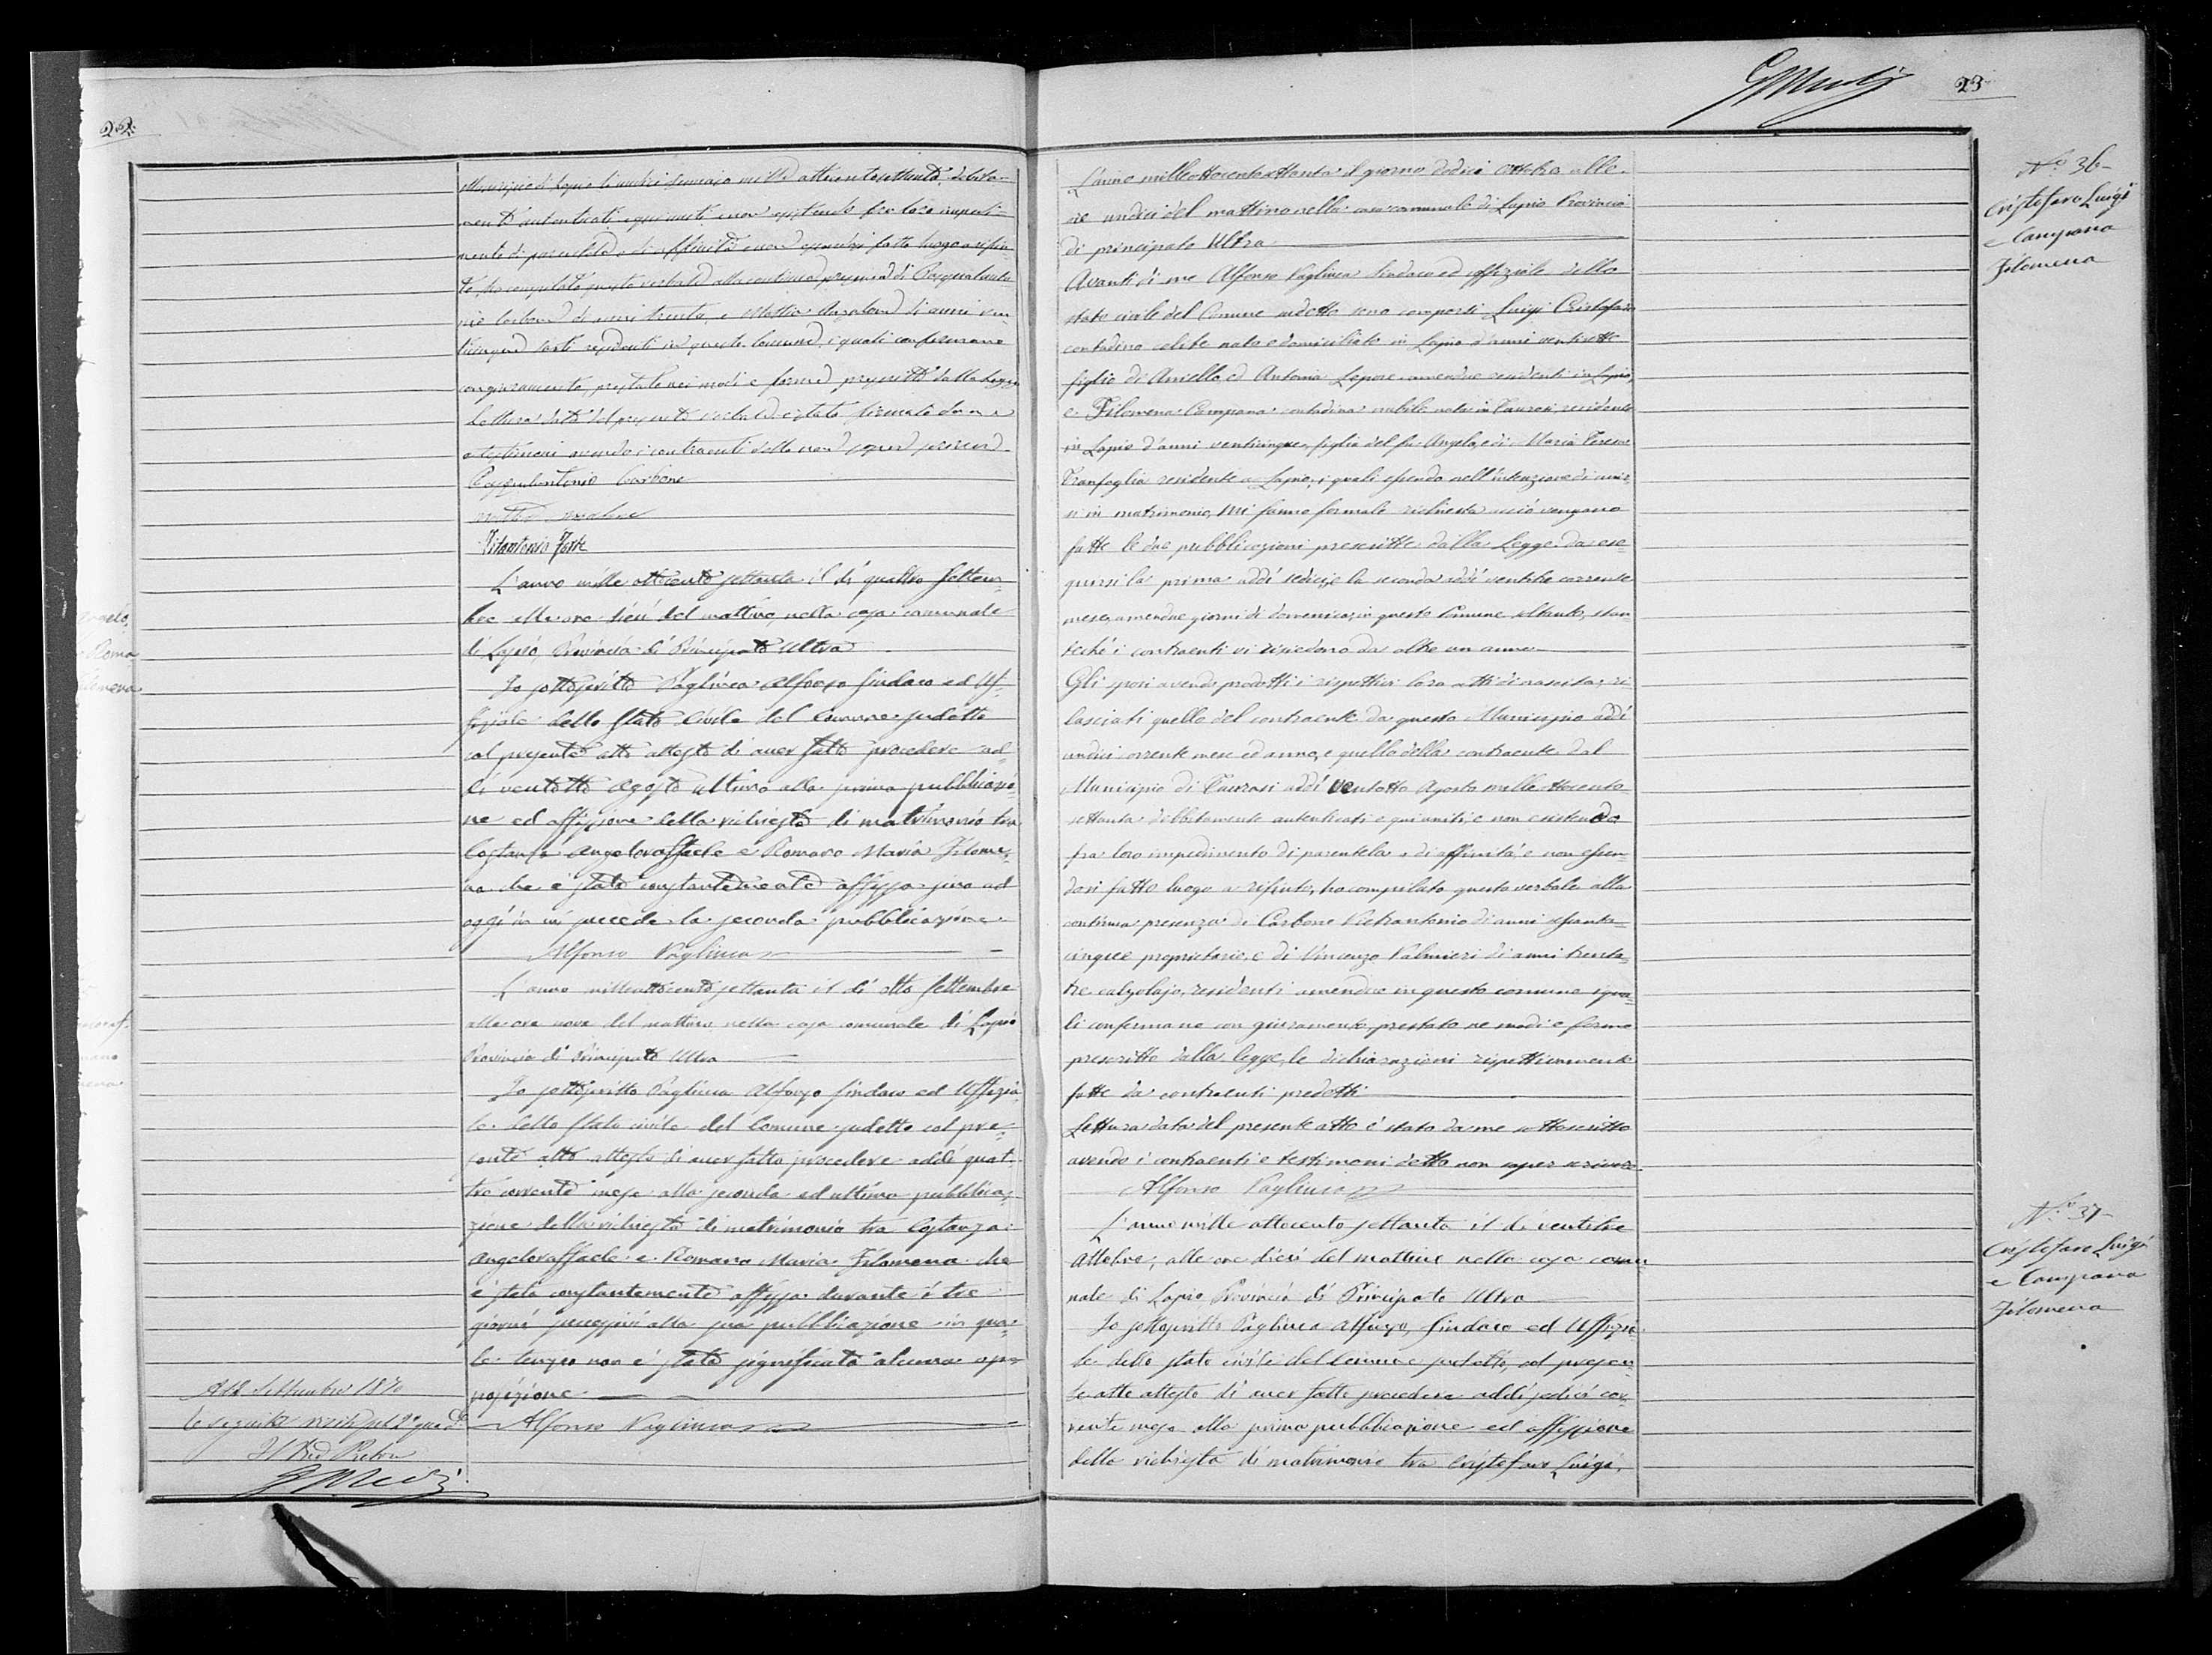 22
Municipio di Lapio li undici Gennaio mille ottocento settanta debita-
mente autenticati e qui uniti e non esistendo fra loro impedi-
mento di parentela o di affinità e non essendosi fatto luogo a rifiu-
to, ho compilato questo verbale alla continua presenza di Pasqualanto-
nio Carbone di anni trenta, e Mattia di anni ven-
ticinque sarti residenti in questo Comune, i quali confermano
con giuramento prestato nei modi e forme prescritte dalla legge
Lettura data del presente verbale è stato firmato da me
e testimoni avendo i contraenti detto non saper scrivere.
Pasqualantonio Carbone
Vitantonio Forte
L'anno mille ottocento settanta il dì quattro Settem-
bre alle ore dieci del mattino, nella casa comunale
di Lapio, Provincia di Principato Ultra
Io sottoscritto Pagliuca Alfonso Sindaco ed Uf-
fiziale dello Stato Civile del Comune sudetto
col presente atto attesto di aver fatto procedere ad-
dì ventotto Agosto ultimo alla prima pubblicazio-
ne ed affissione della richiesta di matrimonio tra
Costanza Angeloraffaele e Romano Maria Filome-
na che è stata constantemente affissa sino ad
oggi in cui succede la seconda pubblicazione.
Alfonso Pagliuca
L'anno milleottocento settanta il dì otto Settembre
alle ore nove del mattino nella casa comunale di Lapio
Provincia di Principato Ultra
Io sottoscritto Pagliuca Alfonso Sindaco ed Uffizia-
le dello Stato civile del Comune sudetto col pre-
sente atto attesto di aver fatto procedere addì quat-
tro corrente mese alla seconda ed ultima pubblica-
zione della richiesta di matrimonio tra Costanza
Angeloraffaele e Romano Maria Filomena che
è stata constantemente affissa durante i tre
giorni successivi alla sua pubblicazione in qua-
le tempo non è stata significata alcuna op-
posizione
Alfonso Pagliuca
Settembre 1870
Il Pretore
23
No 36
Cristofaro Luigi
e Campana
Filomena
L'anno milleottocentosettanta il giorno dodici Ottobre alle
ore undici del mattino nella casa comunale di Lapio Provincia
di principato Ultra
Avanti di me Alfonso Pagliuca Sindaco ed uffiziale dello
stato civile del Comune sudetto sono comparsi Luigi Cristofaro
contadino celibe nato e domiciliato in Lapio d'anni ventisette
figlio di Aniello, ed Antonia Lepore amendue residenti in Lapio,
e Filomena Campana contadina nubile nata in Taurasi residente
in Lapio d'anni venticinque, figlia del fu Angelo, e di Maria Teresa
Tranfaglia residente a Lapio, i quali essendo nell'intenzione di unir-
si in matrimonio, Mi fanno formale richiesta acciò vengano
fatte le due pubblicazioni prescritte dalla Legge da ese-
guirsi la prima addì sedici, e la seconda addì ventitre corrente
mese, amendue giorni di domenica, in questo Comune soltanto, stan-
techè i contraenti vi risiedono da oltre un anno
Gli sposi avendo prodotti i rispettivi loro atti di nascita, ri-
lasciati quello del contraente da questo Municipio addì
undici corrente mese ed anno, e quello della contraente dal
Municipio di Taurasi addì ventotto Agosto mille ottocento
settanta debbitamente autenticati e qui uniti, e non esistendo
fra loro impedimento di parentela o di affinità, e non essen-
dosi fatto luogo a rifiuto, ho compilato questo verbale alla
continua presenza di Carbone Pietrantonio di anni sessanta-
cinque proprietario, e di Vincenzo Palmieri di anni trenta-
tre calzolajo, residenti amendue in questo comune i qua-
li confermano con giuramento prestato ne modi e forme
prescritto dalla legge, le dichiarazioni rispettivamente
fatte da contraenti predetti
Lettura data del presente atto è stato da me sottoscritto
avendo i contraenti e testimoni detto non saper scrivere
Alfonso Pagliuca
No 37
Cristofaro Luigi
e Campana
Filomena
L'anno mille ottocento settanta il dì ventitre
Ottobre, alle ore dieci del mattino nella casa comu-
nale di Lapio, Provincia di Principato Ultra
Io sottoscritto Pagliuca Alfonso, Sindaco ed Uffizia-
le dello stato civile del Comune sudetto, col presen-
te atto attesto di aver fatto procedere addì sedici cor-
rente mese alla prima pubblicazione ed affissione
della richiesta di matrimonio tra Cristofaro Luigi,